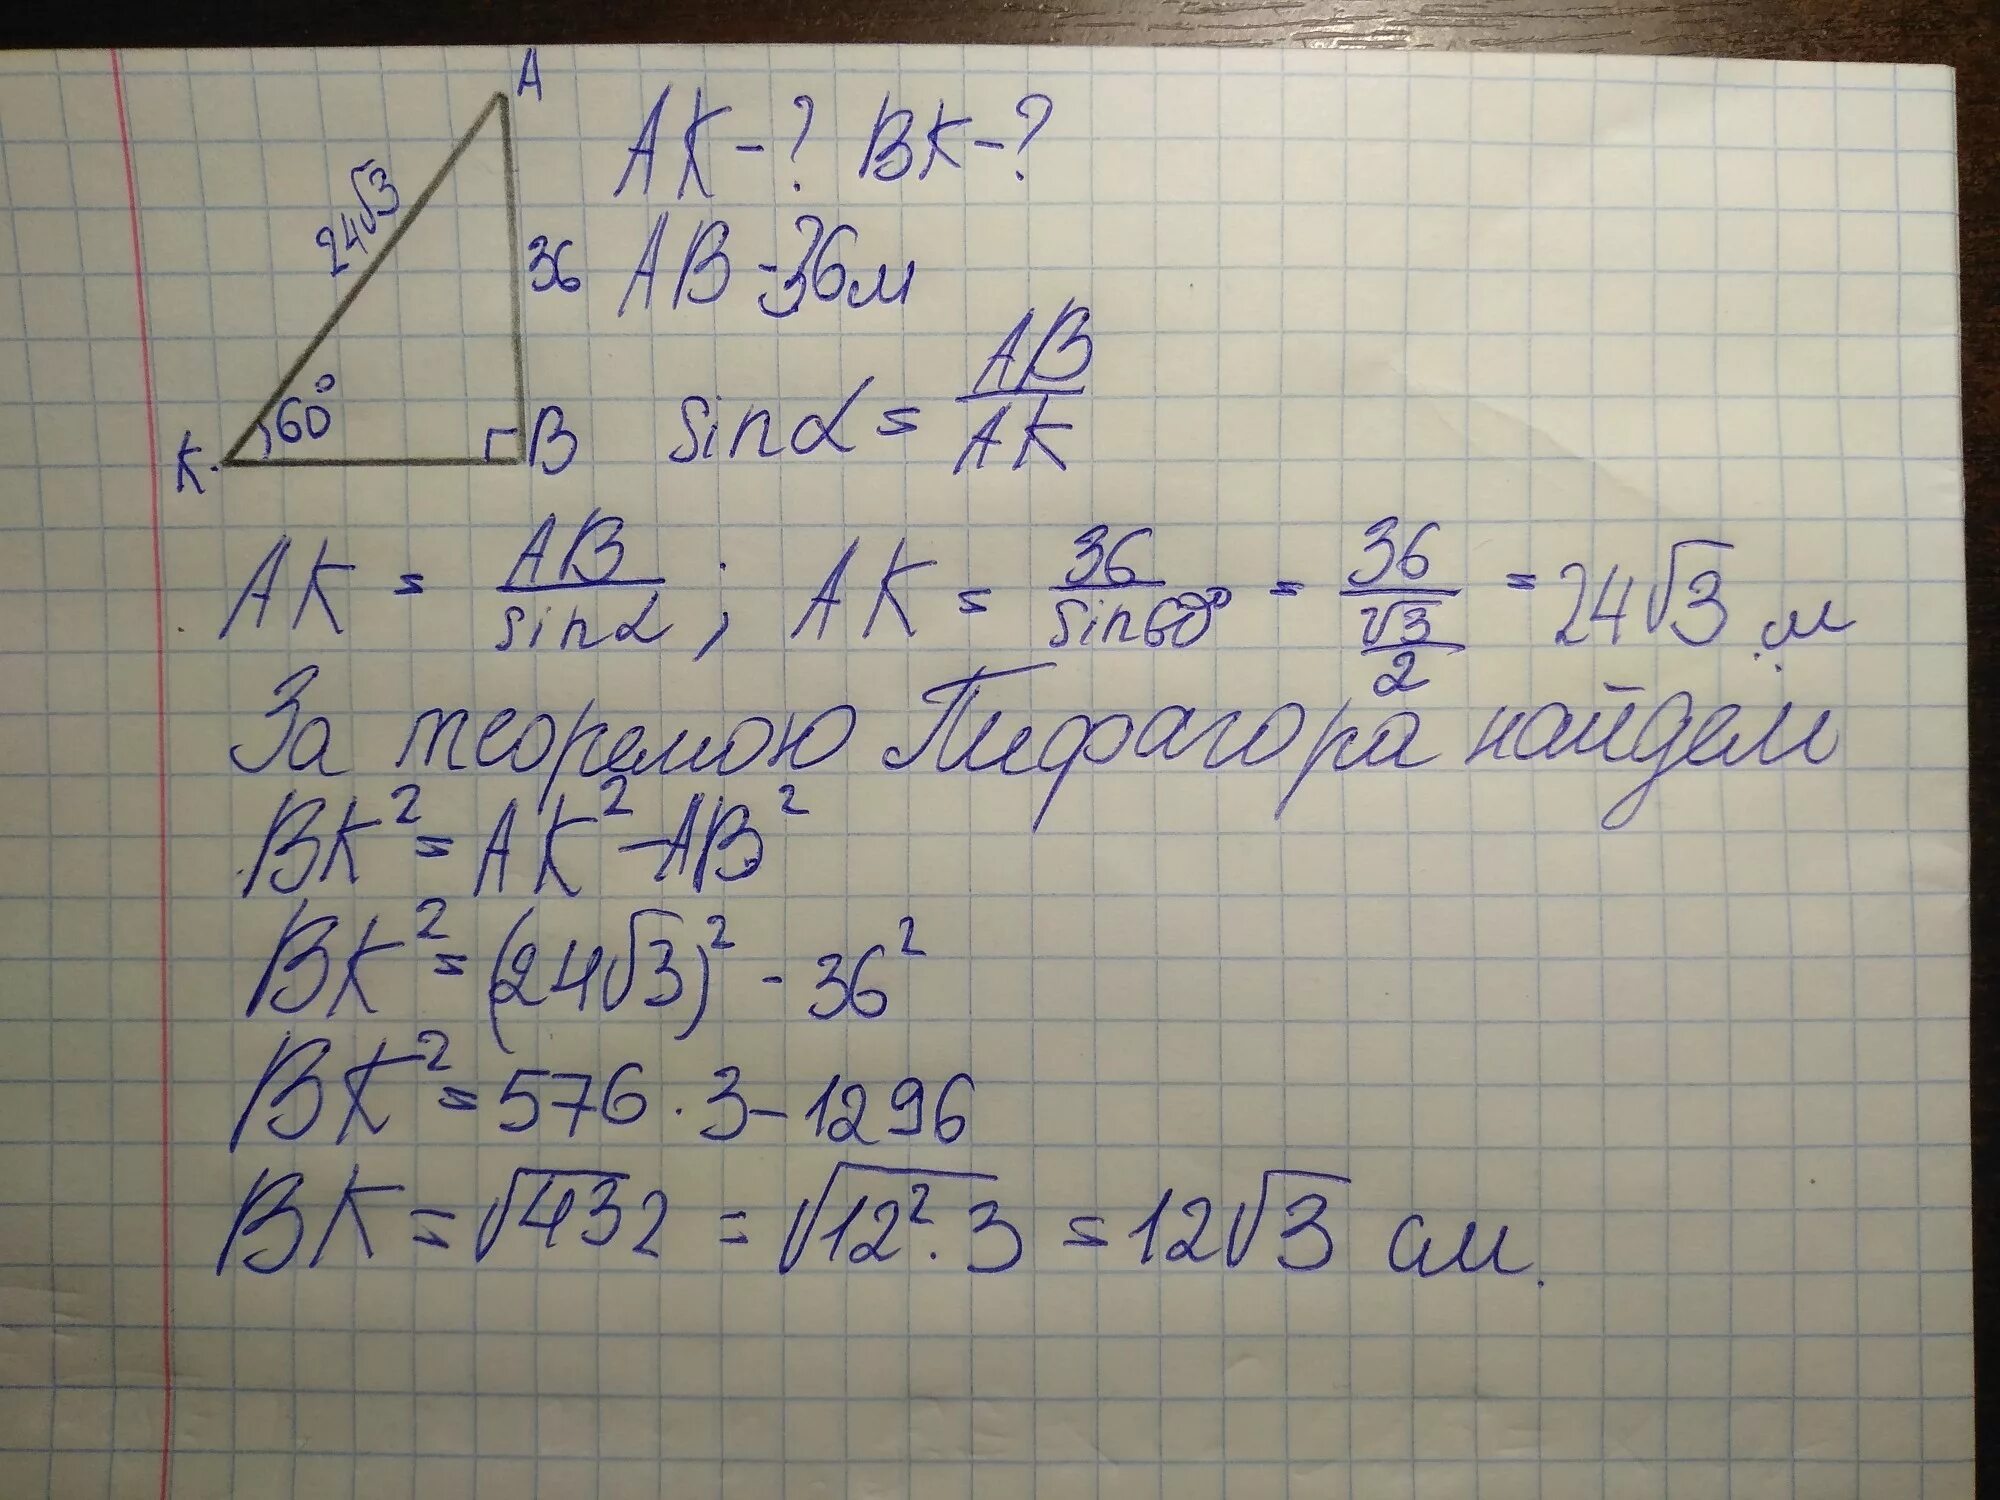 A
AK-? BK-?
24√3
36
AB-36м
60°
K
B
sinα = AB/AK
AK = AB/sinα ; AK = 36/sin60° = 36/(√3/2) = 24√3 м
За теоремою Пифагора найдем
BK² = AK² - AB²
BK² = (24√3)² - 36²
BK² = 576 · 3 - 1296
BK = √432 = √12² · 3 = 12√3 см.